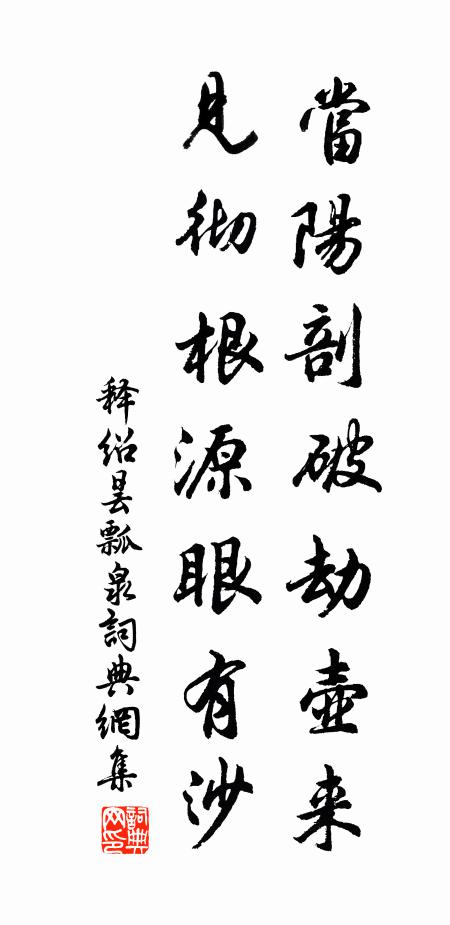 當陽剖破劫壺来
見彻根源眼有沙
释绍昙瓢泉詞典網集
詞典网印